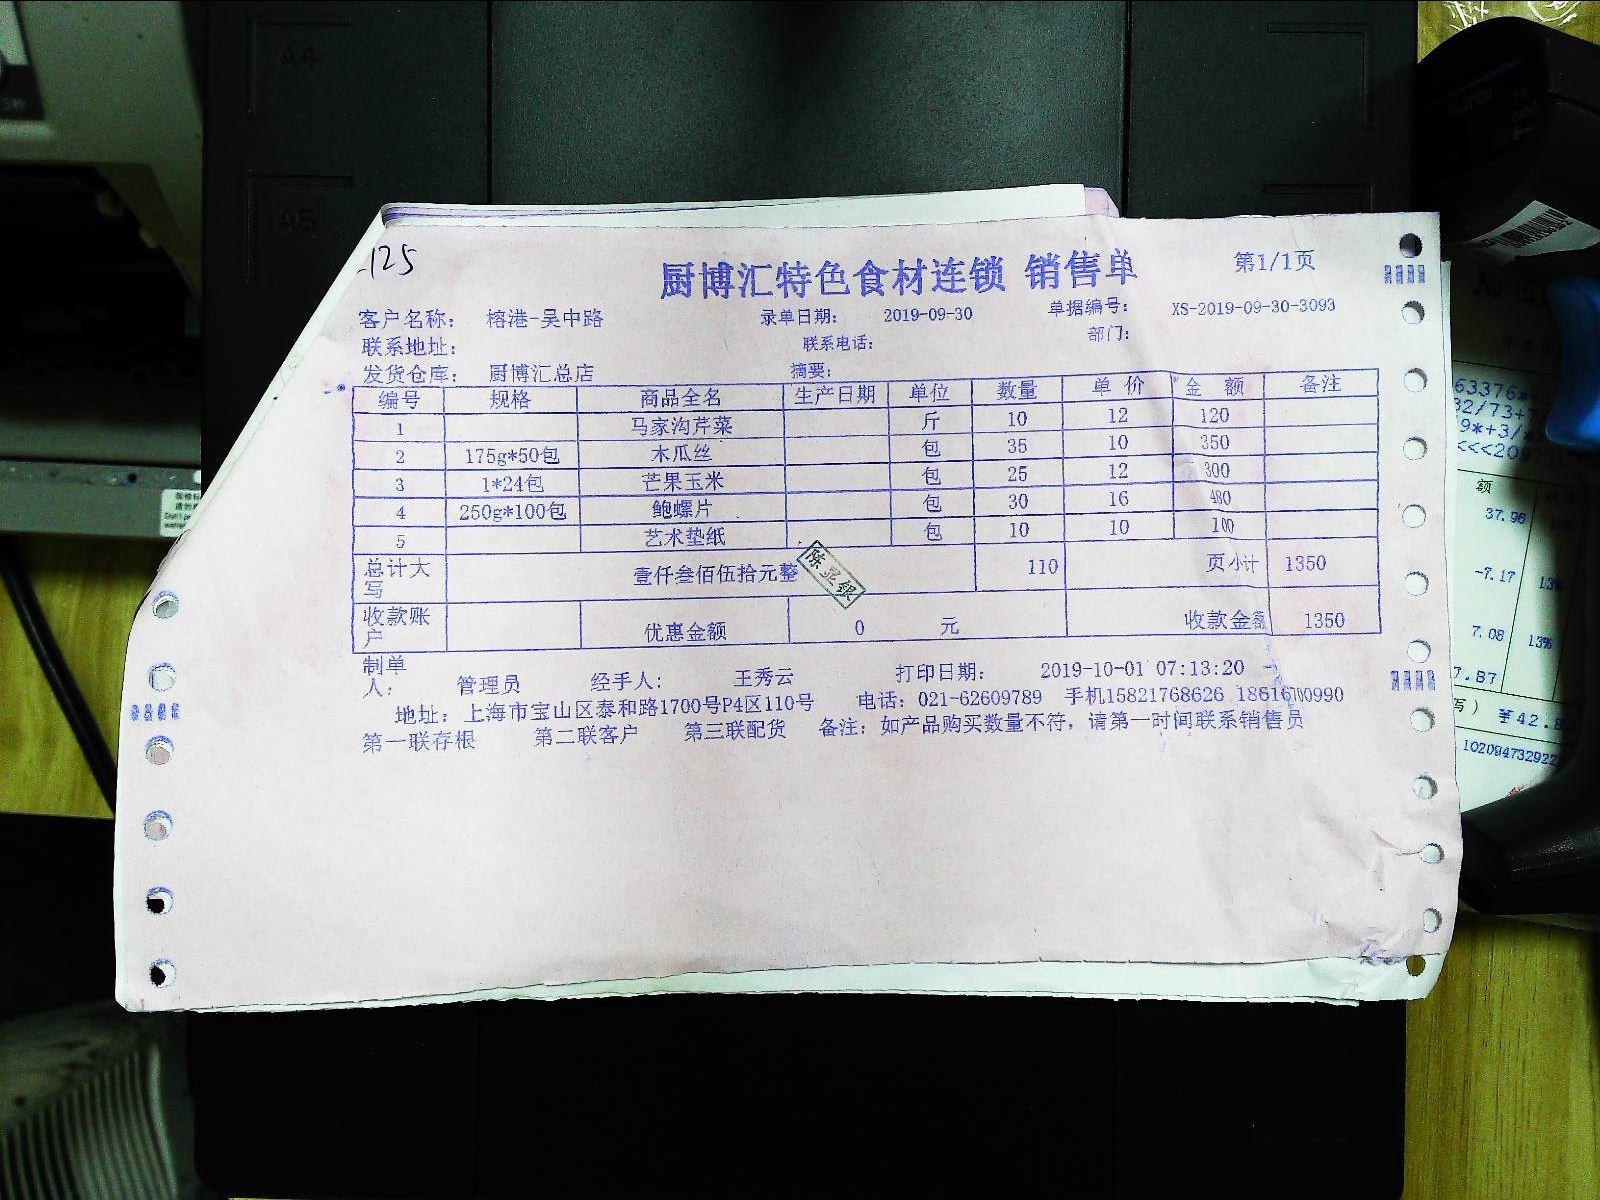 A4
A5
125
厨博汇特色食材连锁 销售单 第1/1页
客户名称: 榕港-吴中路 录单日期: 2019-09-30 单据编号: XS-2019-09-30-3093
联系地址: 联系电话: 部门:
发货仓库: 厨博汇总店 摘要:
编号 规格 商品全名 生产日期 单位 数量 单价 金额 备注
1 马家沟芹菜 斤 10 12 120
2 175g*50包 木瓜丝 包 35 10 350
3 1*24包 芒果玉米 包 25 12 300
4 250g*100包 鲍螺片 包 30 16 480
5 艺术垫纸 包 10 10 100
总计大写 壹仟叁佰伍拾元整 110 页小计 1350
收款账户 优惠金额 0 元 收款金额 1350
制单人: 管理员 经手人: 王秀云 打印日期: 2019-10-01 07:13:20
地址: 上海市宝山区泰和路1700号P4区110号 电话: 021-62609789 手机15821768626 18616700990
第一联存根 第二联客户 第三联配货 备注: 如产品购买数量不符, 请第一时间联系销售员
63376*
32/73+
9*+3/
<<<209
额
37.96
-7.17 13%
7.08 13%
7.87
写) ¥42.8
102094732922